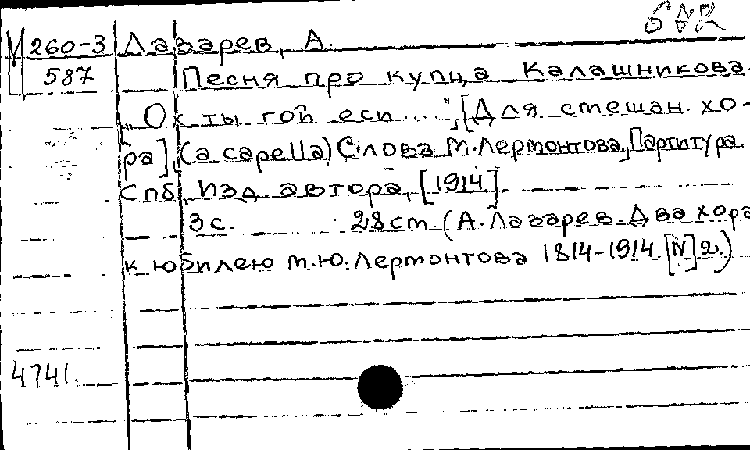 М 260-3 Лазарев, А.
587 Песня про купца Калашникова.
„Ох ты гой еси....", [Для смешан. хо-
ра] (a capella) Слова М. Лермонтова, Партитура.
Спб, изд. автора, [1914].
3 с. 28 cm (А. Лазарев. Два хора
к юбилею М.Ю. Лермонтова 1814-1914 [N] 2.)
4741.